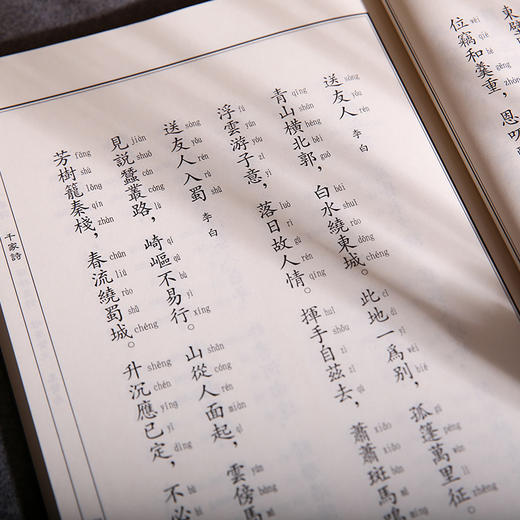 東壁
位竊和羹重，恩叨
送友人 李白
青山橫北郭，白水繞東城。此地一爲別，孤篷萬里征。
浮雲游子意，落日故人情。揮手自茲去，蕭蕭斑馬鳴
送友人入蜀 李白
見説蠶叢路，崎嶇不易行。山從人面起，雲傍馬
芳樹籠秦棧，春流繞蜀城。升沉應已定，不必
千家詩